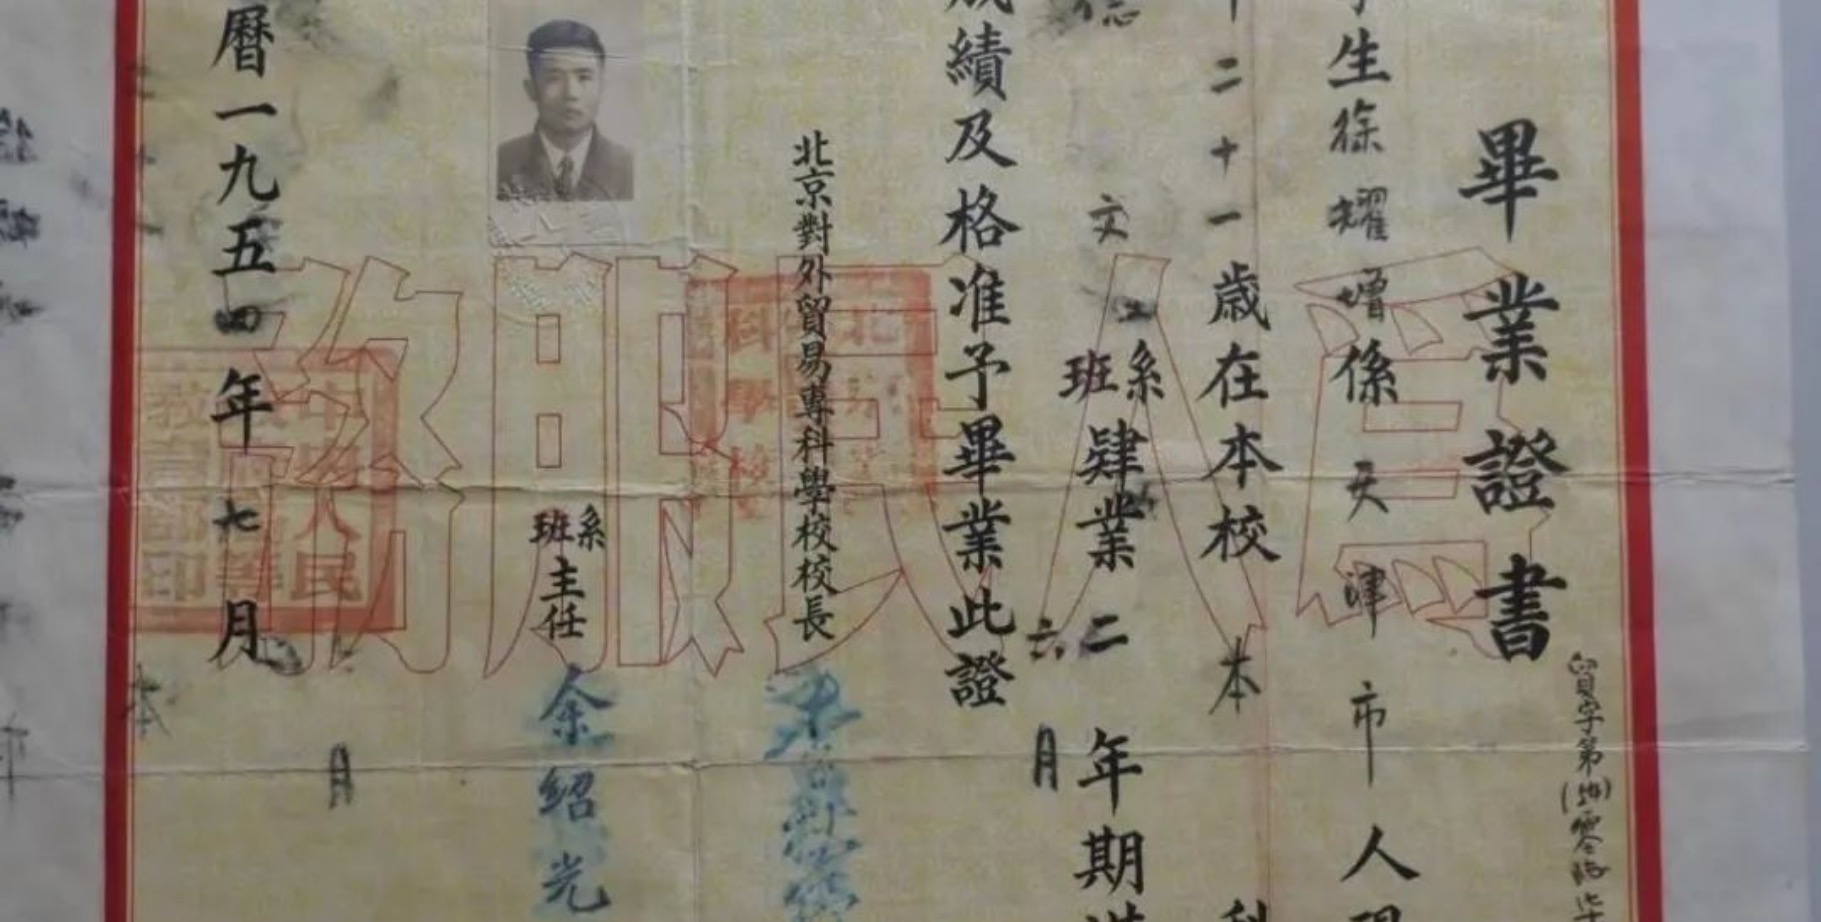 畢業證書
貿字第(54)零
學生徐耀增係天津市人現
年二十一歲在本校本科
文系班肄業二年六月期滿
成績及格准予畢業此證
北京對外貿易專科學校校長
系班主任余紹光
曆一九五四年七月
爲人民服務
中央人民政府高等教育部印